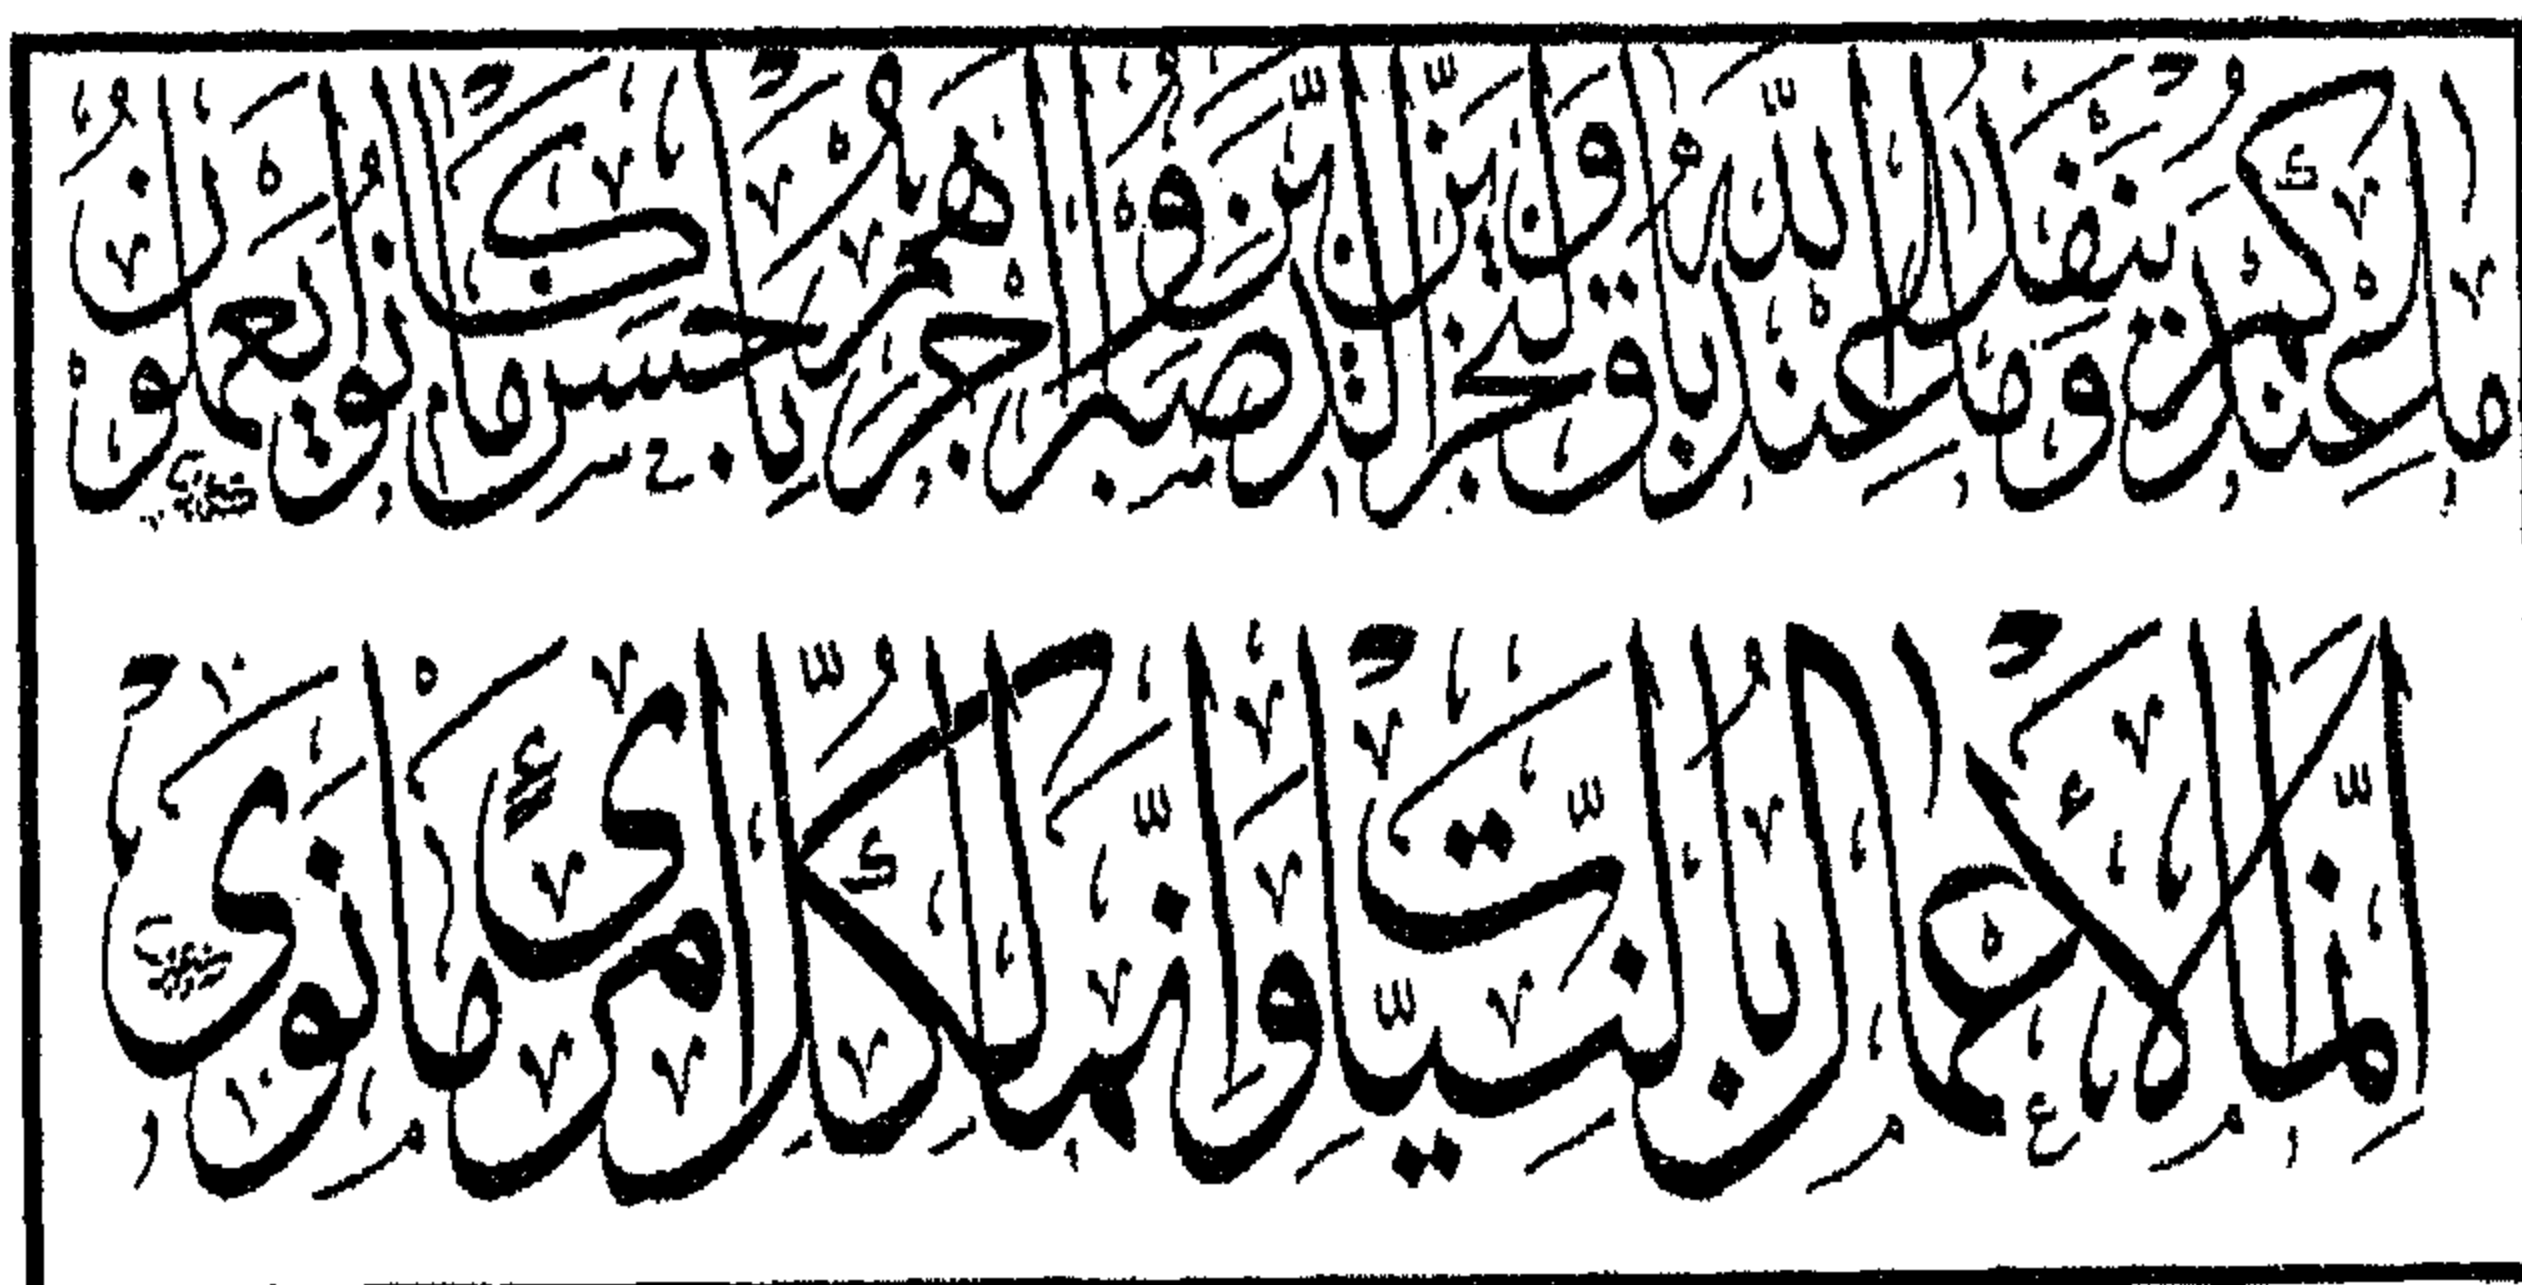 ما عندكم ينفد وما عند الله باق ولنجزين الذين صبروا أجرهم بأحسن ما كانوا يعملون
إنما الأعمال بالنيات وإنما لكل امرئ ما نوى